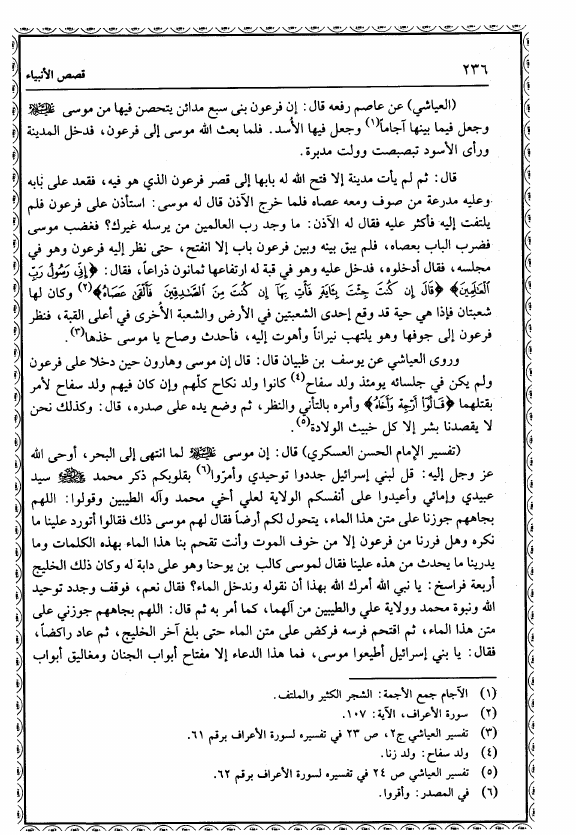 ٢٣٦
قصص الأنبياء
(العياشي) عن عاصم رفعه قال: إن فرعون بنى سبع مدائن يتحصن فيها من موسى عليه السلام
وجعل فيما بينها آجاماً(١) وجعل فيها الأسد. فلما بعث الله موسى إلى فرعون، فدخل المدينة
ورأى الأسود تبصبصت وولت مدبرة.
قال: ثم لم يأت مدينة إلا فتح الله له بابها إلى قصر فرعون الذي هو فيه، فقعد على بابه
وعليه مدرعة من صوف ومعه عصاه فلما خرج الآذن قال له موسى: استأذن على فرعون فلم
يلتفت إليه فأكثر عليه فقال له الآذن: ما وجد رب العالمين من يرسله غيرك؟ فغضب موسى
فضرب الباب بعصاه، فلم يبق بينه وبين فرعون باب إلا انفتح، حتى نظر إليه فرعون وهو في
مجلسه، فقال أدخلوه، فدخل عليه وهو في قبة له ارتفاعها ثمانون ذراعاً، فقال: ﴿إِنِّي رَسُولُ رَبِّ
الْعَالَمِينَ﴾ ﴿قَالَ إِن كُنتَ جِئْتَ بِآيَةٍ فَأْتِ بِهَا إِن كُنتَ مِنَ الصَّادِقِينَ فَأَلْقَىٰ عَصَاهُ﴾(٢) وكان لها
شعبتان فإذا هي حية قد وقع إحدى الشعبتين في الأرض والشعبة الأخرى في أعلى القبة، فنظر
فرعون إلى جوفها وهو يلتهب نيراناً وأهوت إليه، فأحدث وصاح يا موسى خذها(٣).
وروى العياشي عن يوسف بن ظبيان قال: قال إن موسى وهارون حين دخلا على فرعون
ولم يكن في جلسائه يومئذ ولد سفاح(٤) كانوا ولد نكاح كلّهم وإن كان فيهم ولد سفاح لأمر
بقتلهما ﴿قَالُوٓا۟ أَرْجِهْ وَأَخَاهُ﴾ وأمره بالتأني والنظر، ثم وضع يده على صدره، قال: وكذلك نحن
لا يقصدنا بشر إلا كل خبيث الولادة(٥).
(تفسير الإمام الحسن العسكري) قال: إن موسى عليه السلام لما انتهى إلى البحر، أوحى الله
عز وجل إليه: قل لبني إسرائيل جددوا توحيدي وأمرّوا(٦) بقلوبكم ذكر محمد ﷺ سيد
عبيدي وإمائي وأعيدوا على أنفسكم الولاية لعلي أخي محمد وآله الطيبين وقولوا: اللهم
بجاههم جوزنا على متن هذا الماء، يتحول لكم أرضاً فقال لهم موسى ذلك فقالوا أتورد علينا ما
نكره وهل فررنا من فرعون إلا من خوف الموت وأنت تقحم بنا هذا الماء بهذه الكلمات وما
يدرينا ما يحدث من هذه علينا فقال لموسى كالب بن يوحنا وهو على دابة له وكان ذلك الخليج
أربعة فراسخ: يا نبي الله أمرك الله بهذا أن نقوله وندخل الماء؟ فقال نعم، فوقف وجدد توحيد
الله ونبوة محمد وولاية علي والطيبين من آلهما، كما أمر به ثم قال: اللهم بجاههم جوزني على
متن هذا الماء، ثم اقتحم فرسه فركض على متن الماء حتى بلغ آخر الخليج، ثم عاد راكضاً،
فقال: يا بني إسرائيل أطيعوا موسى، فما هذا الدعاء إلا مفتاح أبواب الجنان ومغاليق أبواب
(١) الآجام جمع الأجمة: الشجر الكثير والملتف.
(٢) سورة الأعراف، الآية: ١٠٧.
(٣) تفسير العياشي ج٢، ص ٢٣ في تفسيره لسورة الأعراف برقم ٦١.
(٤) ولد سفاح: ولد زنا.
(٥) تفسير العياشي ص ٢٤ في تفسيره لسورة الأعراف برقم ٦٢.
(٦) في المصدر: وأقروا.